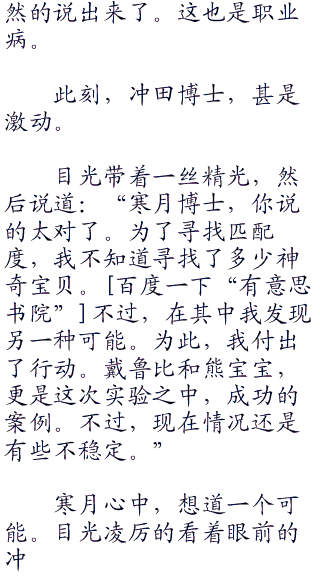 然的说出来了。这也是职业
病。
此刻，冲田博士，甚是
激动。
目光带着一丝精光，然
后说道：“寒月博士，你说
的太对了。为了寻找匹配
度，我不知道寻找了多少神
奇宝贝。[百度一下“有意思
书院”]不过，在其中我发现
另一种可能。为此，我付出
了行动。戴鲁比和熊宝宝，
更是这次实验之中，成功的
案例。不过，现在情况还是
有些不稳定。”
寒月心中，想道一个可
能。目光凌厉的看着眼前的
冲